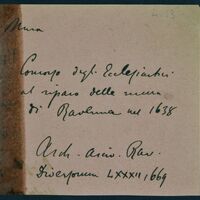 Mura
Concorso degli Ecclesiastici
al riparo delle mura
di Ravenna nel 1638
Arch. arciv. Rav.
Diversorum LXXXII, 669